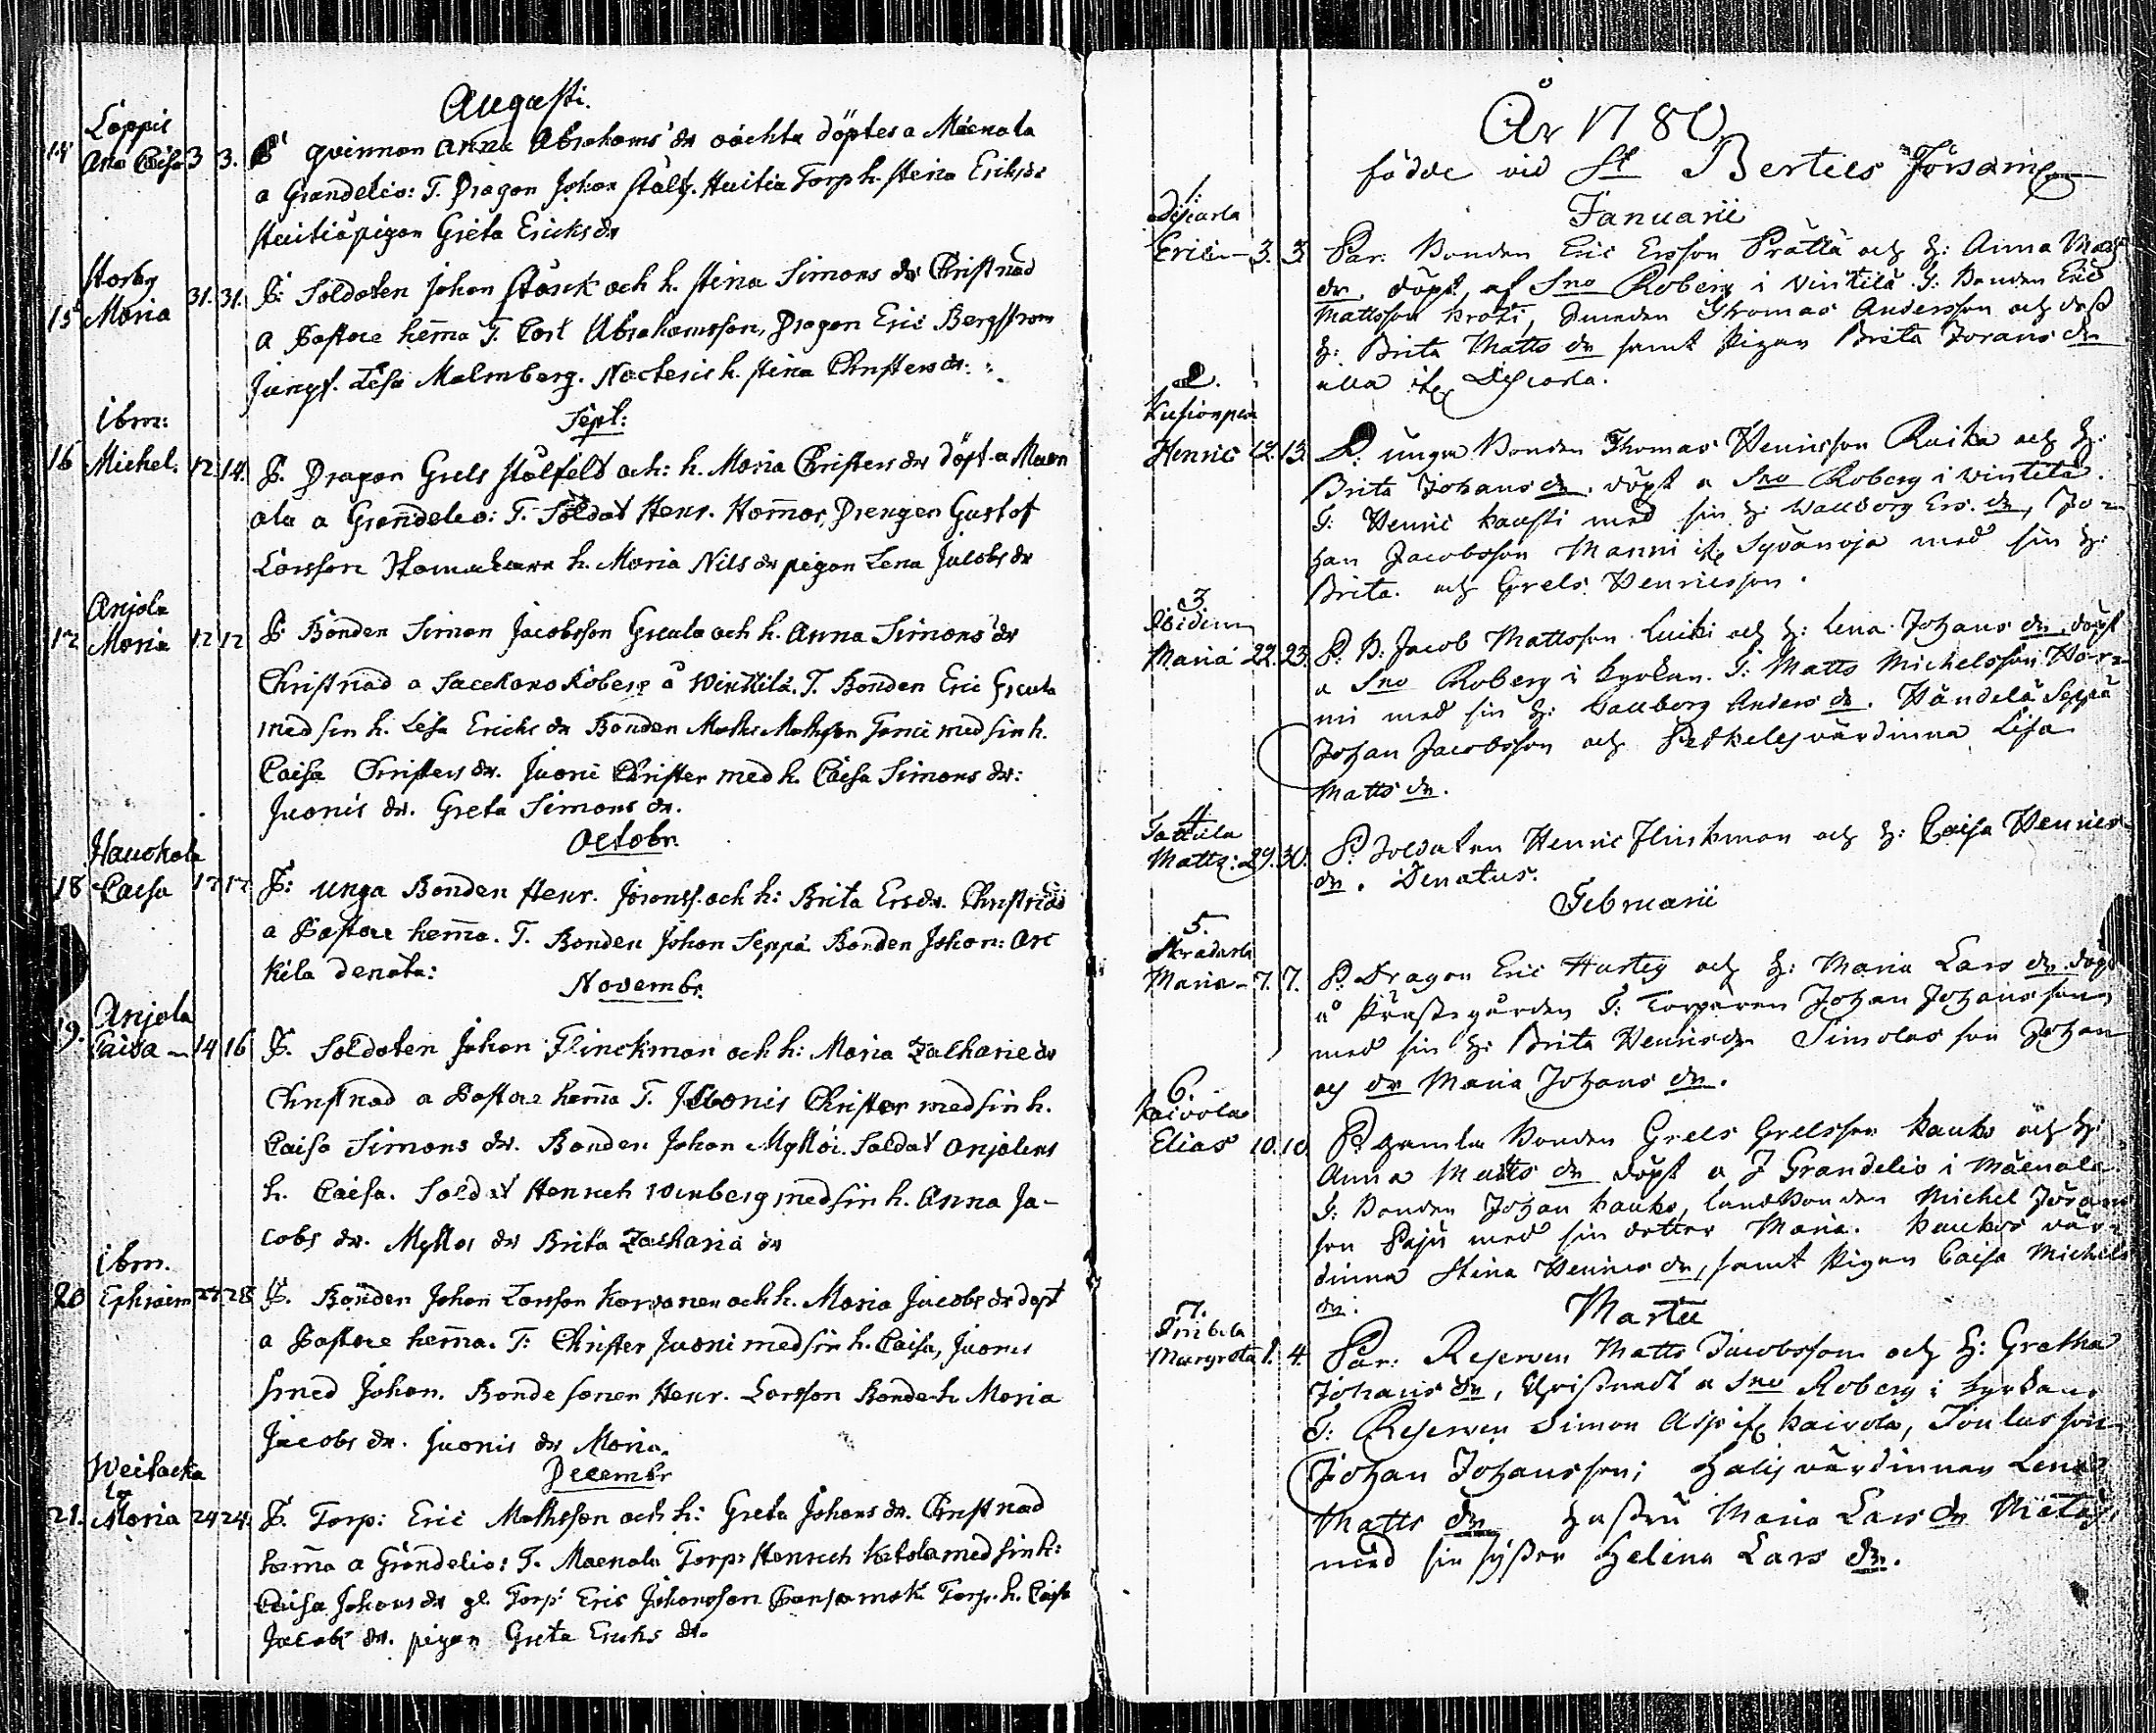 Augusti.
Loppis
14 Ana Caisa 3 3. P. qvinnan Anna Abrahams dr oächta döptes a Mäenala
a Grandelio: T. Dragon Johan Stålf. Torp h. Stina Eriksdr
pigan Greta Ericks dr
Storby
15 Maria 31. 31. P: Soldaten Johan Starck och h. Stina Simons dr Christnad
a Pastore hemma T. Carl Abrahamsson, Dragon Eric Bergstrom
Jungf. Lisa Malmberg. h. Stina Christers dr:
Sept:
Ibm:
16 Michel. 12. 14. P. Dragon Grels Stålfelt och: h. Maria Christers dr döpt a Maen
ala a Grandelio: T. Soldat Henr. Drengen Gustaf
Larsson h. Maria Nils dr pigan Lena Jacobs dr
Anjala
17 Maria 12 12 P: Bonden Simon Jacobsson och h. Anna Simons dr
Christnad a Sacellano Roberg å Winttilä. T. Bonden Eric
med sin h. Lisa Ericks dr Bonden Matts Matsson med sin h.
Caisa Christers dr. Juoni Christer med h. Caisa Simons dr:
Juonis dr. Greta Simons dr.
Octobr.
Haukola
18 Caisa 17 17 P: unga Bonden Henr. Joransf. och h: Brita Ersdr. Christnad
a Pastore hemma. T. Bonden Johan Seppä Bonden Johan: Arc
kila denata:
Novembr.
Anjala
19. Caisa 14 16 P. Soldaten Johan Flinckman och h: Maria Zacharie dr
Christnad a Pastore hemma T. Juonis Christer med sin h.
Caisa Simons dr. Bonden Johan Myllöi. Soldat Anjalens
h. Caisa. Soldat Henrich Winberg med sin h. Anna Ja-
cobs dr. Myllös dr Brita Zacharia dr
Ibm.
20 Ephraim 27 28 P. Bonden Johan Larsson och h. Maria Jacobs dr döpt
a Pastore hemma. T: Christer Juoni med sin h. Caisa, Juonis
smed Johan. Bonde sonen Henr. Larsson Bonde h. Maria
Jacobs dr. Juonis dr Maria.
Decembr
Weitacka
la
21. Maria 24 24. P. Torp: Eric Mathsson och h: Greta Johans dr. Christnad
hemma a Grandelio: T. Maenala Torp: Henrich Katola med sin h:
Caisa Johans dr gl. Torp: Eric Johansson Torp. h. Caisa
Jacobs dr. pigan Greta Ericks dr.
År 1780
födde vid St Bertils Församl.
Januarii
1.
Discarla
Eric 3. 3 Par. Bonden Eric Ersson Prättä och h: Anna Matts
dr. döpt af Sno Roberg i Vintilä T: Bonden Eric
Mattsson Smeden Thomas Andersson och dess
h: Brita Matts dr samt Pigan Brita Jorans dr
alla ifr. Discarla.
2.
Henric 12. 13. P. unga Bonden Thomas Henricsson Ruika och h:
Brita Johans dr. döpt a Sno Roberg i Vintilä.
T: Henric med sin h: Wallborg Ers. dr, Jo-
han Jacobsson Manni ifr. Syvänoja med sin h:
Brita. och Grels Henricsson.
3.
Maria 22. 23. P: B: Jacob Mattsson Luiki och h: Lena Johans dr. döpt
a Sno Roberg i kyrkan. T: Matts Michelsson
mi med sin h: Wallborg Anders dr. Händelä Seppä
Johan Jacobsson och värdinna Lisa
Matts dr.
4
Tattula
Matts: 29. 30. P. Soldaten Henric Flinkman och h: Caisa Henrics
dr. Denatus.
Februarii
5.
Skradarla
Maria 7. 7. P. Dragon Eric Hurtig och h: Maria Lars dr. döpt
a Prästegården T: Torparen Johan Johansson
med sin h: Brita Henrics dr Simolas son Johan
och dr Maria Johans dr.
6.
Kaivola
Elias 10. 10. P. gamla Bonden Grels Grelsson Kauko och h:
Anna Matts dr döpt a J Grandelio i Mäenala
T: Bonden Johan Kauko, landbonden Michel Jöran
son Paju med sin dotter Maria. Kaukos vär-
dinna Stina Henrics dr, samt Pigan Caisa Michels
dr.
Martii
7.
Margreta 1. 4. Par: Reserven Matts Jacobsson och h: Gretha
Johans dr, Christnadt a Sno Roberg i kyrkan
T: Reserven Simon Asp ifr. Kaivola, Toulas son
Johan Johansson; värdinnan Lena
Matts dr hustru Maria Lars dr
med sin syster Helena Lars dr.